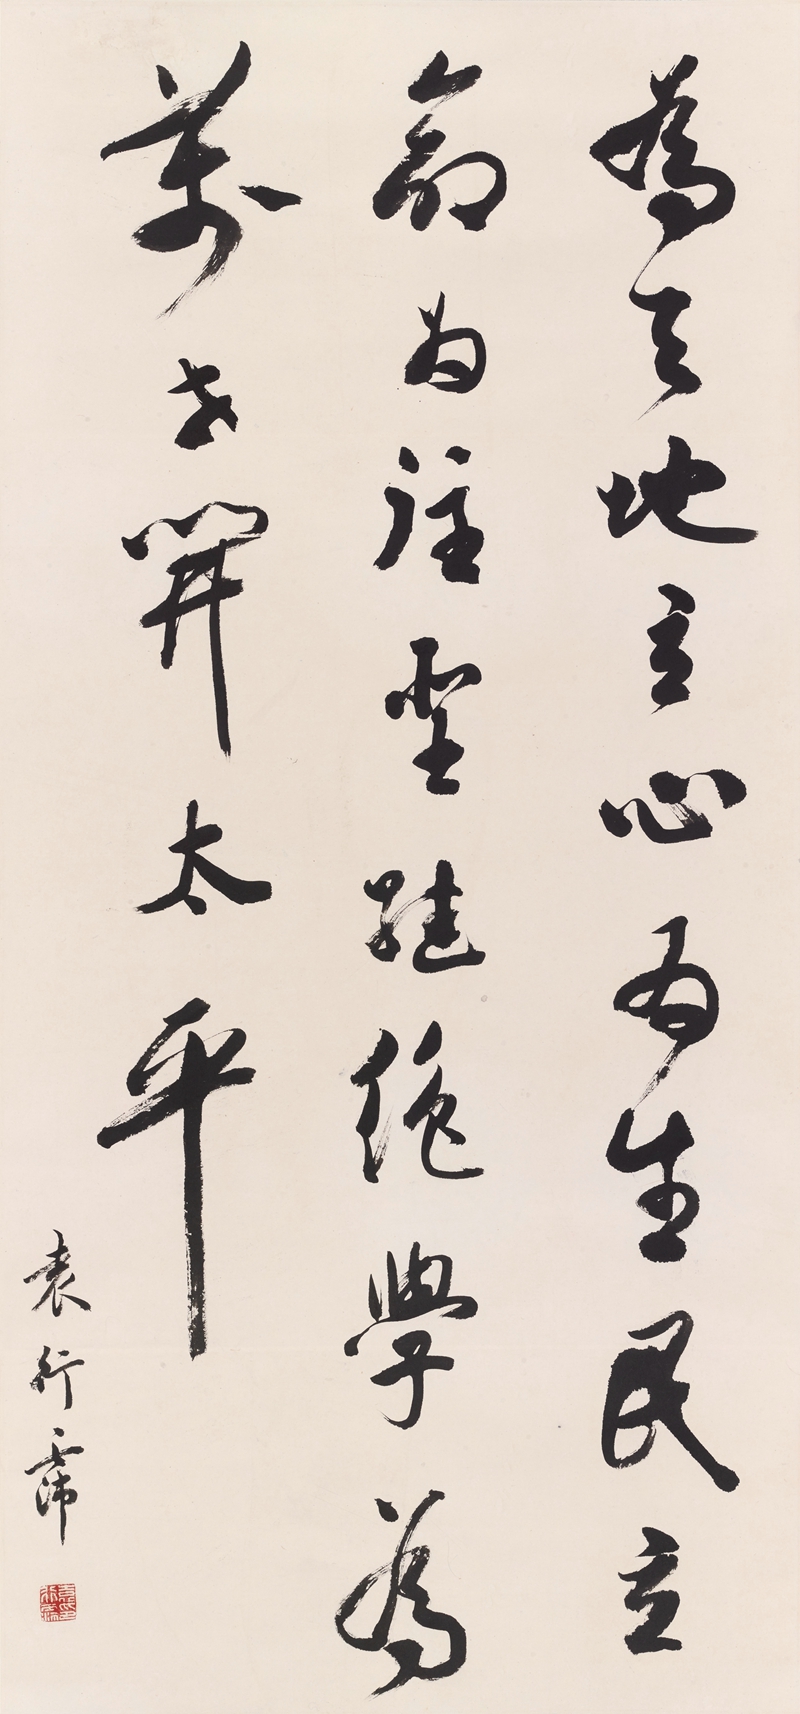 為天地立心為生民立
命為往聖繼絕學為
萬世開太平
袁行霈